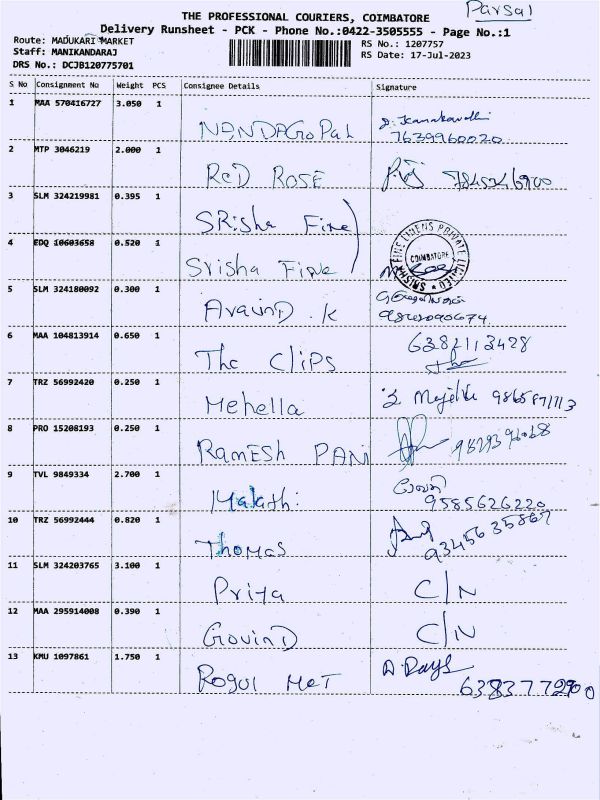 Parsal
THE PROFESSIONAL COURIERS, COIMBATORE
Delivery Runsheet - PCK - Phone No.:0422-3505555 - Page No.:1
Route: MADUKARI MARKET
RS No.: 1207757
Staff: MANIKANDARAJ
RS Date: 17-Jul-2023
DRS No.: DCJB120775701
S No Consignment No Weight PCS Consignee Details Signature
1 MAA 570416727 3.050 1
NANDAGoPaL
7639960020
2 MTP 3046219 2.000 1
ReD ROSE
3 SLM 324219981 0.395 1
SRisha Fine
SRISHA FINE LINENS PRIVATE LIMITED
COIMBATORE
4 EDQ 10603658 0.520 1
Srisha Fine
5 SLM 324180092 0.300 1
AravinD .K
6 MAA 104813914 0.650 1
6382113428
The CliPs
7 TRZ 56992420 0.250 1
Mehella
8 PRO 15208193 0.250 1
RamESh PANI
9 TVL 9849334 2.700 1
Malathi
9585626220
10 TRZ 56992444 0.820 1
Thomas
9345635867
11 SLM 324203765 3.100 1
Priya C/N
12 MAA 295914008 0.390 1
GovinD C/N
13 KMU 1097861 1.750 1